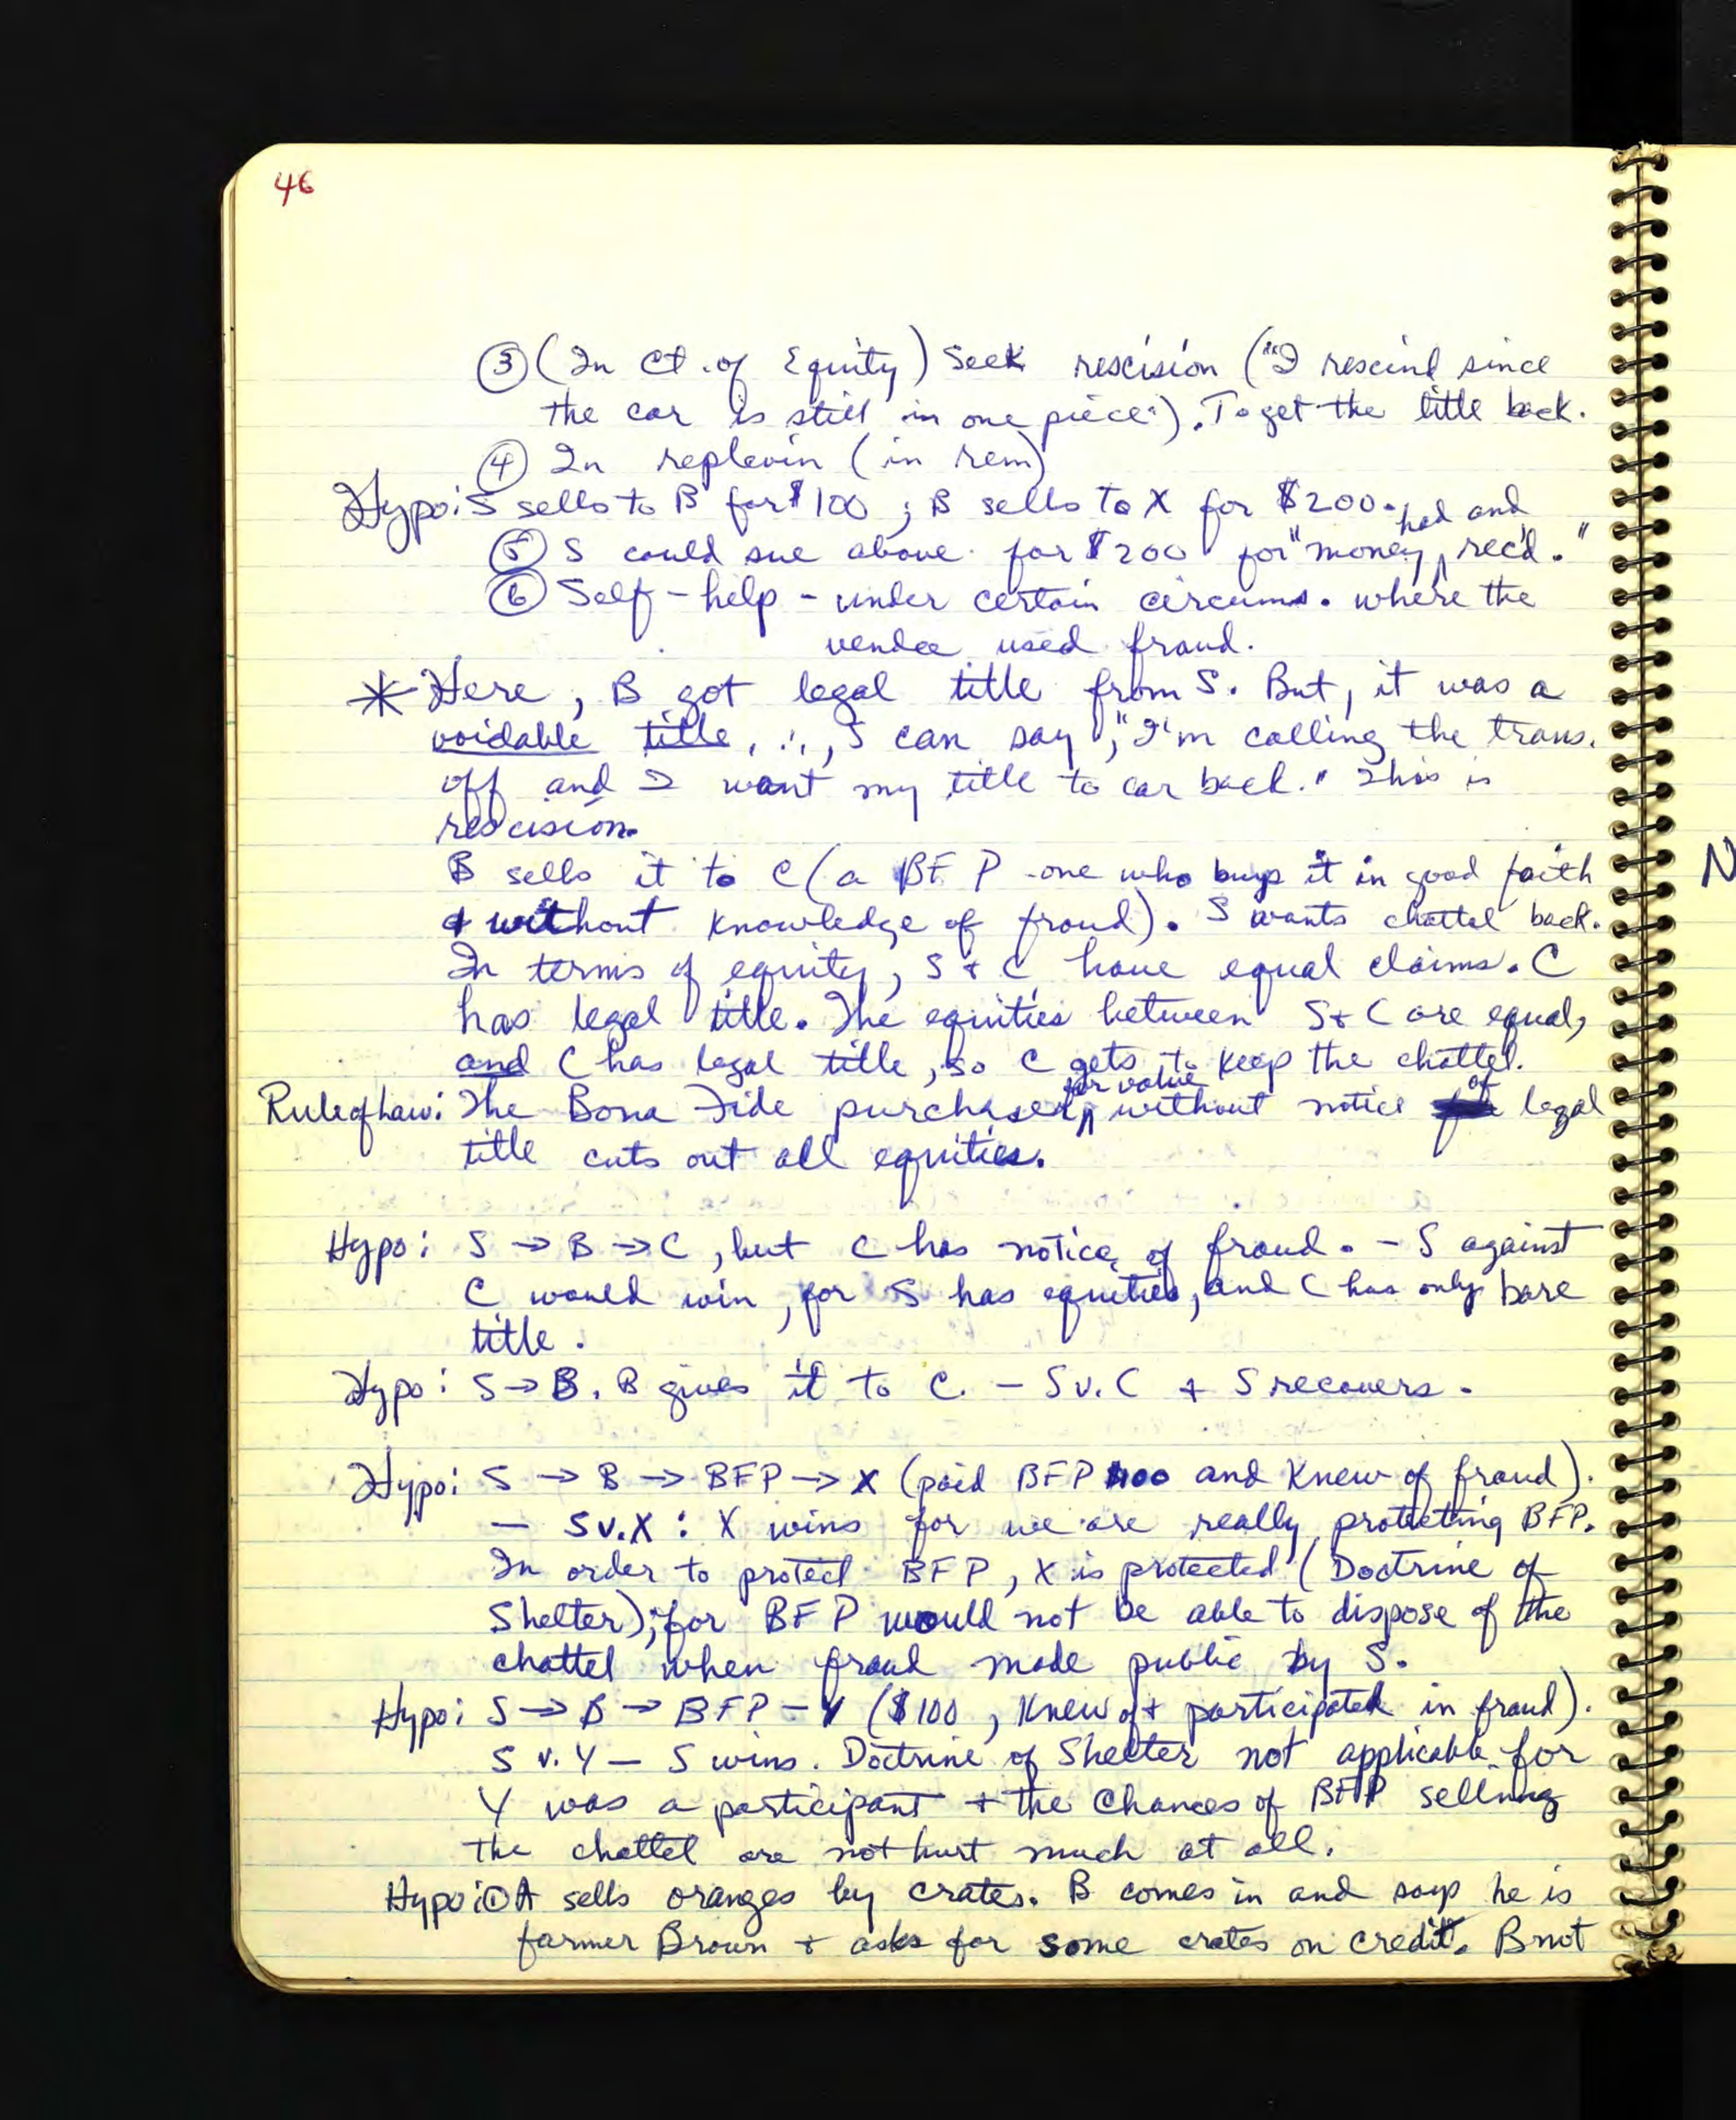 46
③ (In Ct. of Equity) Seek rescision ("I rescind since
the car is still in one piece."). To get the title back.
④ In replevin (in rem)
Hypo: S sells to B for $100; B sells to X for $200.
⑤ S could sue above for $200 for "money had and rec'd."
⑥ Self-help - under certain circums. where the
vendee used fraud.
* Here, B got legal title from S. But, it was a
voidable title, ∴, S can say, "I'm calling the trans.
off and I want my title to car back." This is
rescision.
B sells it to C (a BFP - one who buys it in good faith
& without knowledge of fraud). S wants chattel back.
In terms of equity, S + C have equal claims. C
has legal title. The equities between S + C are equal,
and C has legal title, so C gets to keep the chattel.
Rule of Law: The Bona Fide purchaser for value without notice of legal
title cuts out all equities.
Hypo: S → B → C, but C has notice of fraud. - S against
C would win, for S has equities, and C has only bare
title.
Hypo: S → B. B gives it to C. - S v. C & S recovers.
Hypo: S → B → BFP → X (paid BFP $100 and knew of fraud).
- S v. X: X wins for we are really protecting BFP.
In order to protect BFP, X is protected (Doctrine of
Shelter); for BFP would not be able to dispose of the
chattel when fraud made public by S.
Hypo: S → B → BFP - Y ($100, knew of + participated in fraud).
S v. Y - S wins. Doctrine of Shelter not applicable for
Y was a participant + the chances of BFP selling
the chattel are not hurt much at all.
Hypo: ① A sells oranges by crates. B comes in and says he is
farmer Brown + asks for some crates on credit. B not
N